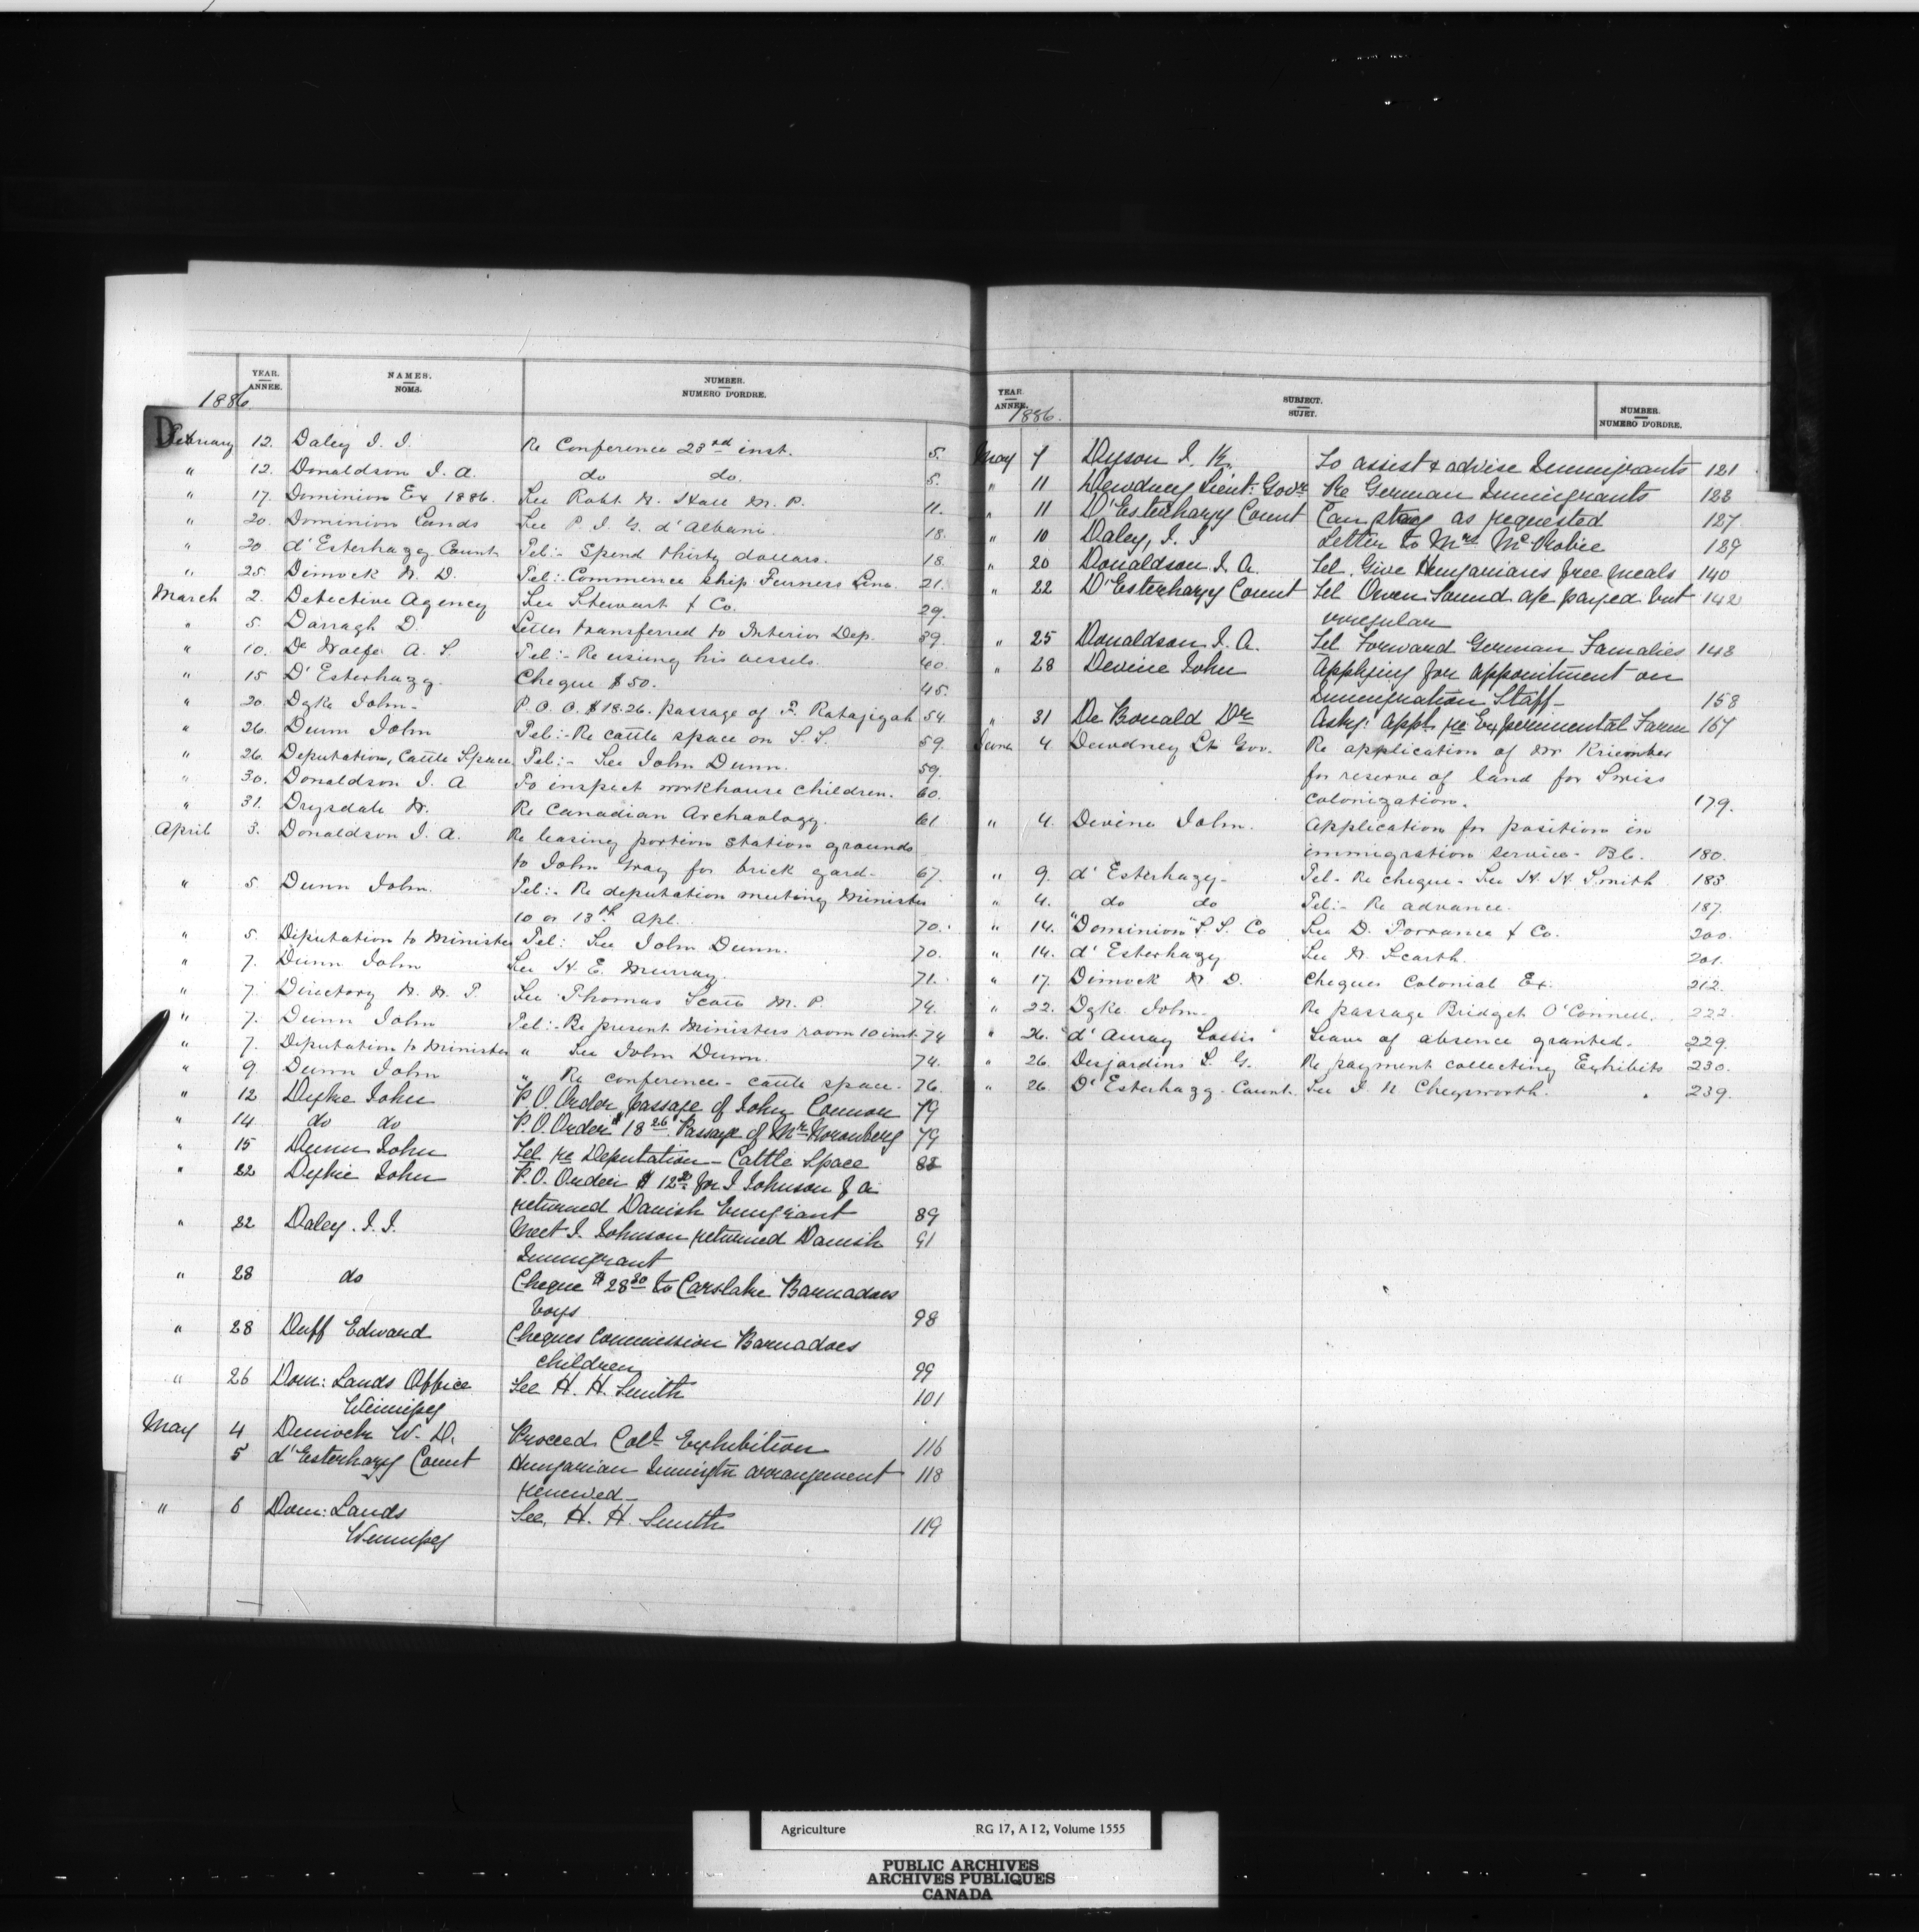 YEAR.
ANNÉE.
NAMES.
NOMS.
NUMBER.
NUMERO D'ORDRE.
1886.
D
February 12. Daley J. J. Re Conference 23rd inst. 5.
" 12. Donaldson J. A. do do. 5.
" 17. Dominion Ex 1886. See Robt. N. Hall M. P. 11.
" 20. Dominion Lands See P. J. G. d'Albani. 18.
" 20 d'Esterhazy Count Tel:- Spend thirty dollars. 18.
" 25. Dimock W. D. Tel:- Commence ship Furness Line. 21.
March 2. Detective Agency See Stewart & Co. 29.
" 5. Darragh D. Letter transferred to Interior Dep. 39.
" 10. De Wolfe A. S. Tel:- Re using his vessels. 40.
" 15 D'Esterhazy. Cheque $50. 45.
" 20. Dyke John- P. O. O. $18.26. passage of F. Ratajizah 54.
" 26. Dunn John Tel:- Re cattle space on S. S. 59.
" 26. Deputation, Cattle Space Tel:- See John Dunn. 59.
" 30. Donaldson J. A To inspect workhouse children. 60.
" 31. Drysdale W. Re Canadian Archaology. 61
April 3. Donaldson J. A. Re leasing portion station grounds
to John Gray for brick yard- 67.
" 5. Dunn John. Tel:- Re deputation meeting Minister
10 or 13th Apl. 70.
" 5. Deputation to Minister Tel: See John Dunn. 70.
" 7. Dunn John See H. E. Murray. 71.
" 7. Directory N. W. T. See Thomas Scott M. P. 74.
" 7. Dunn John Tel:- Be present Ministers room 10 inst. 74
" 7. Deputation to Minister " See John Dunn. 74.
" 9. Dunn John " Re conference- cattle space. 76.
" 12 Dyke John P.O. Order passage of John Connon 79
" 14. do do P.O. Order $18 26 Passage of Mr Noronberg 79
" 15 Dunn John Tel re Deputation - Cattle Space 88
" 22 Dyke John P.O. Order $ 12 for J Johnson & a
returned Danish Emigrant 89
" 22 Daley. J. J. Meet J. Johnson returned Danish 91
Immigrant
" 28 do Cheque $28 80 to Carslake Barnadoes
boys 98
" 28 Duff Edward Cheques Commission Barnadoes
children 99
" 26 Dom: Lands Office See H. H. Smith 101
Winnipeg
May 4 Dimock W. D. Proceed Coll. Exhibition 116
5 d'Esterhazy Count Hungarian Immigtn arrangement 118
renewed-
" 6 Dom: Lands See, H. H. Smith 119
Winnipeg
YEAR.
ANNÉE.
SUBJECT.
SUJET.
NUMBER.
NUMERO D'ORDRE.
1886.
May 7 Dyson J. K. To assist & advise Immigrants 121
" 11 Dewdney Lieut: Govr Re German Immigrants 123
" 11 D'Esterhazy Count Can stay as requested 127
" 10 Daley, J. J Letter to Mrs McRobie 129
" 20 Donaldson J. A. Tel. Give Hungarians free meals 140
" 22 D'Esterhazy Count Tel Owen Sound a/c payed but 142
irregular
" 25 Donaldson J. A. Tel Forward German Famalies 143
" 28 Devine John Applying for appointment on
Immigration Staff- 158
" 31 De Bonald Dr Askg: appt re Experimental Farm 167
June 4 Dewdney Lt Gov. Re application of Mr
for reserve of land for Swiss
colonization. 179.
" 4. Devine John. Application for position in
immigration service- B.C. 180.
" 9. d'Esterhazy- Tel- Re cheque- See H. H. Smith 183.
" 4. do do Tel:- Re advance. 187.
" 14. "Dominion" S. S. Co See D. Torrance & Co. 200.
" 14. d'Esterhazy See W. Scarth. 201.
" 17. Dimock W. D. Cheques Colonial Ex. 212.
" 22. Dyke John- Re passage Bridget O'Connell. 222.
" 26. "d'Auray Lossis" Leave of absence granted. 229.
" 26. Desjardins L. G. Re payment collecting Exhibits 230.
" 26. D'Esterhazy- Count. See J. N Cheynworth. 239.
Agriculture RG 17, A I 2, Volume 1555
PUBLIC ARCHIVES
ARCHIVES PUBLIQUES
CANADA